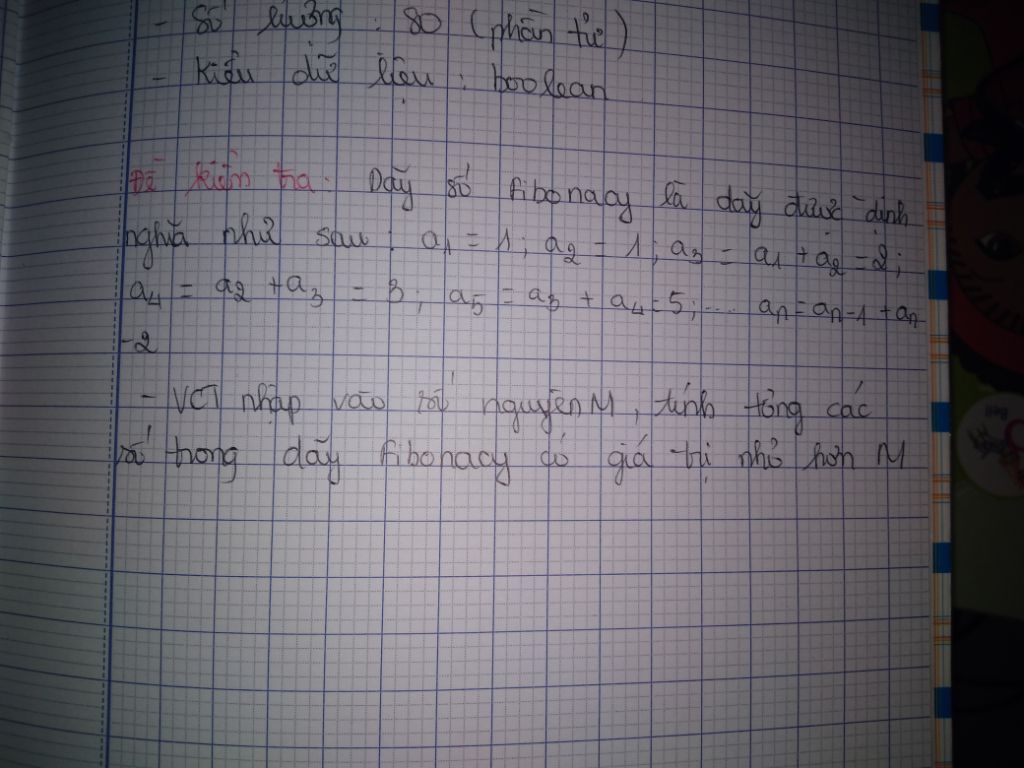 - Số lượng : 80 (phần tử)
- Kiểu dữ liệu : boolean
Đề kiểm tra. Dãy số fibonacy là dãy được định
nghĩa như sau : a1 = 1; a2 = 1; a3 = a1 + a2 = 2;
a4 = a2 + a3 = 3; a5 = a3 + a4 = 5; ... an = an-1 + an
-2
- VCT nhập vào số nguyên M, tính tổng các
số trong dãy fibonacy có giá trị nhỏ hơn M